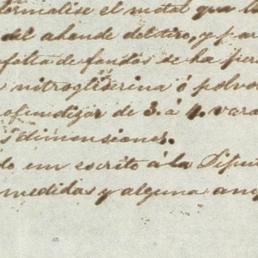 ormalise el metal que
del ahonde del tiro, y par
falta de fondos se ha per
nitroglicerina ó polvo
ofundizar de 3. á 4. vara
s dimensiones.
do em escrito á la Dipu
medidas y alguna am